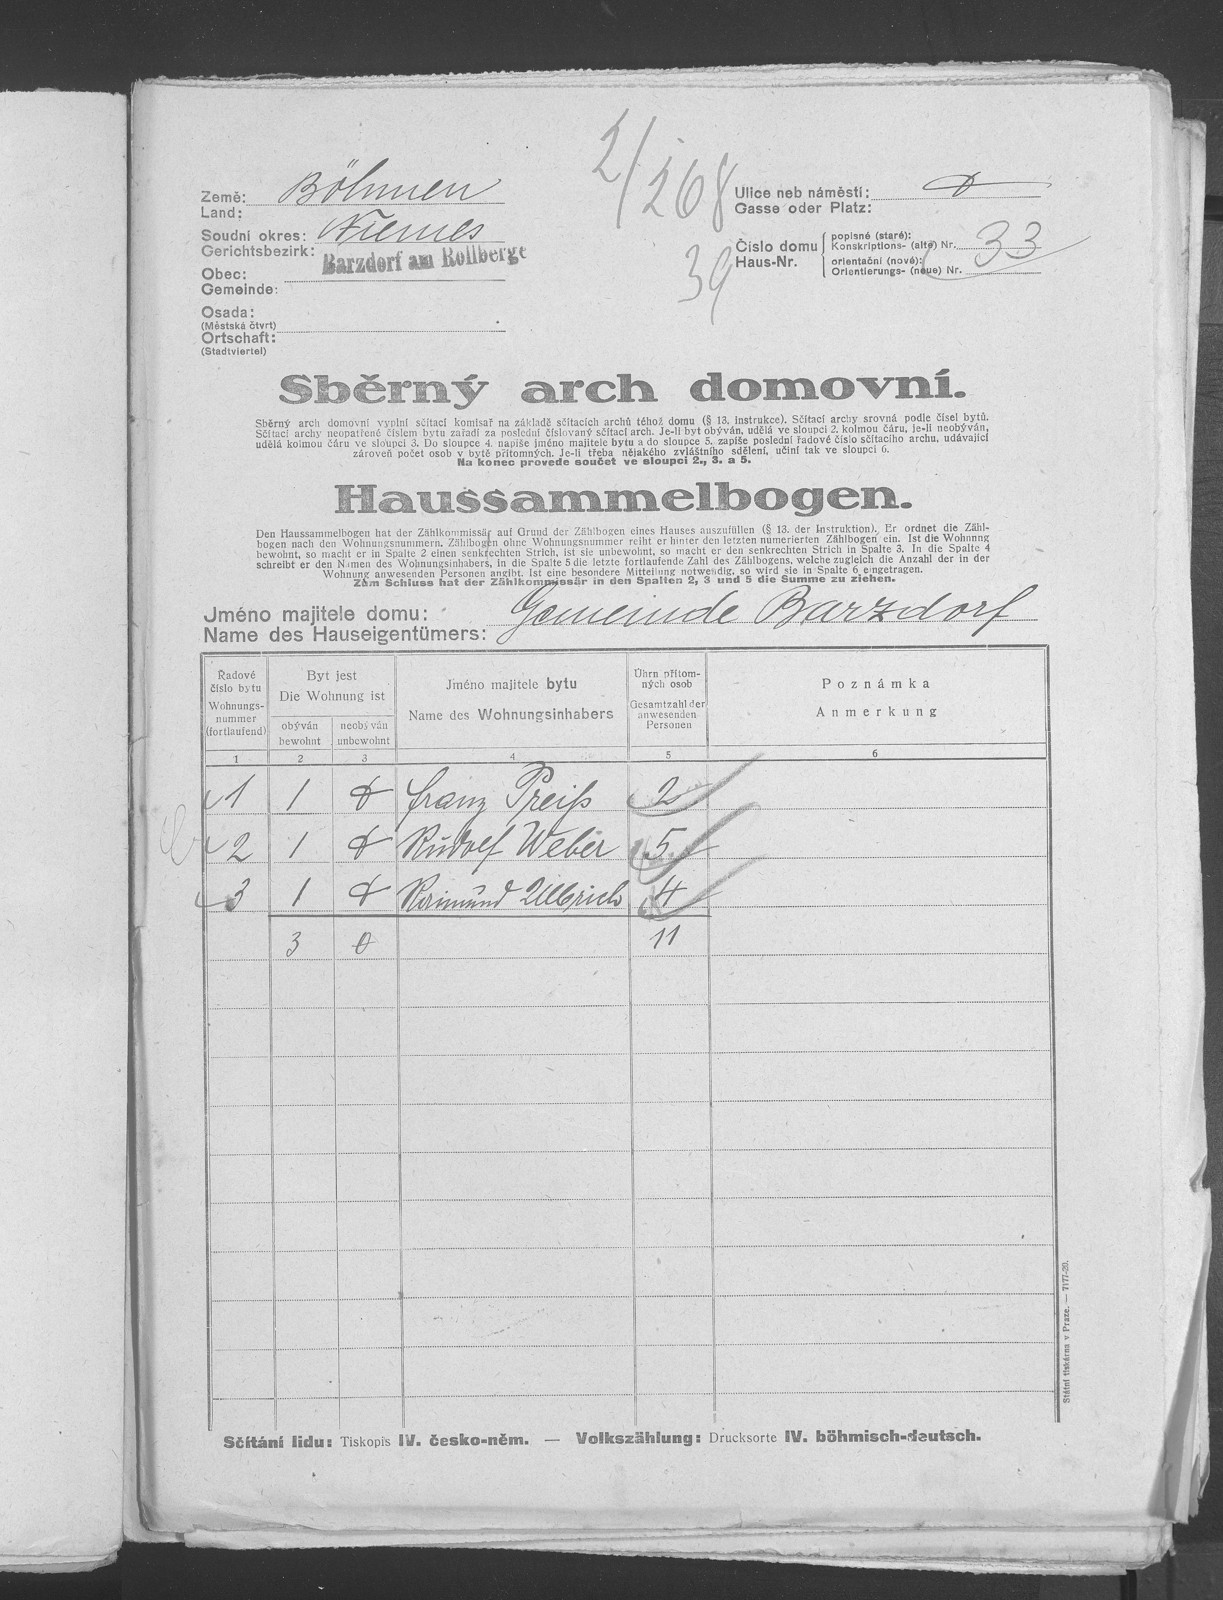 2/268
Země: Böhmen
Land:
Soudní okres: Niemes
Gerichtsbezirk:
Barzdorf am Rollberge
Obec:
Gemeinde:
Osada:
(Městská čtvrt)
Ortschaft:
(Stadtviertel)
Ulice neb náměstí:
Gasse oder Platz:
Číslo domu
Haus-Nr.
popisné (staré):
Konskriptions- (alte) Nr. 33
orientační (nové):
Orientierungs- (neue) Nr.
39
Sběrný arch domovní.
Sběrný arch domovní vyplní sčítací komisař na základě sčítacích archů téhož domu (§ 13. instrukce). Sčítací archy srovná podle čísel bytů.
Sčítací archy neopatřené číslem bytu zařadí za poslední číslovaný sčítací arch. Je-li byt obýván, udělá ve sloupci 2. kolmou čáru, je-li neobýván,
udělá kolmou čáru ve sloupci 3. Do sloupce 4. napíše jméno majitele bytu a do sloupce 5. zapíše poslední řadové číslo sčítacího archu, udávající
zároveň počet osob v bytě přítomných. Je-li třeba nějakého zvláštního sdělení, učiní tak ve sloupci 6.
Na konec provede součet ve sloupci 2., 3. a 5.
Haussammelbogen.
Den Haussammelbogen hat der Zählkommissär auf Grund der Zählbogen eines Hauses auszufüllen (§ 13. der Instruktion). Er ordnet die Zähl-
bogen nach den Wohnungsnummern. Zählbogen ohne Wohnungsnummer reiht er hinter den letzten numerierten Zählbogen ein. Ist die Wohnung
bewohnt, so macht er in Spalte 2 einen senkrechten Strich, ist sie unbewohnt, so macht er den senkrechten Strich in Spalte 3. In die Spalte 4
schreibt er den Namen des Wohnungsinhabers, in die Spalte 5 die letzte fortlaufende Zahl des Zählbogens, welche zugleich die Anzahl der in der
Wohnung anwesenden Personen angibt. Ist eine besondere Mitteilung notwendig, so wird sie in Spalte 6 eingetragen.
Zum Schluss hat der Zählkommissär in den Spalten 2, 3 und 5 die Summe zu ziehen.
Jméno majitele domu:
Name des Hauseigentümers: Gemeinde Barzdorf
Řadové
číslo bytu
Wohnungs-
nummer
(fortlaufend)
Byt jest
Die Wohnung ist
obýván
bewohnt
neobýván
unbewohnt
Jméno majitele bytu
Name des Wohnungsinhabers
Úhrn přítom-
ných osob
Gesamtzahl der
anwesenden
Personen
Poznámka
Anmerkung
1 2 3 4 5 6
1 1 0 Franz Preiß 2
2 1 0 Rudolf Weber 5
3 1 0 Raimund Ullbrich 4
3 0 11
Sčítání lidu: Tiskopis IV. česko-něm. — Volkszählung: Drucksorte IV. böhmisch-deutsch.
Státní tiskárna v Praze. — 7177-20.